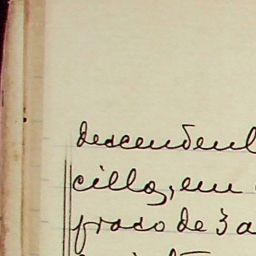 descendent
cilla, em
praso de 3 a